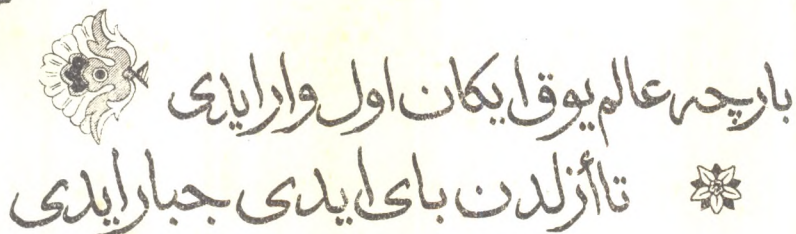 بارچه عالم یوق ایکان اول وار ایدی
تا أزلدن بای ایدی جبار ایدی